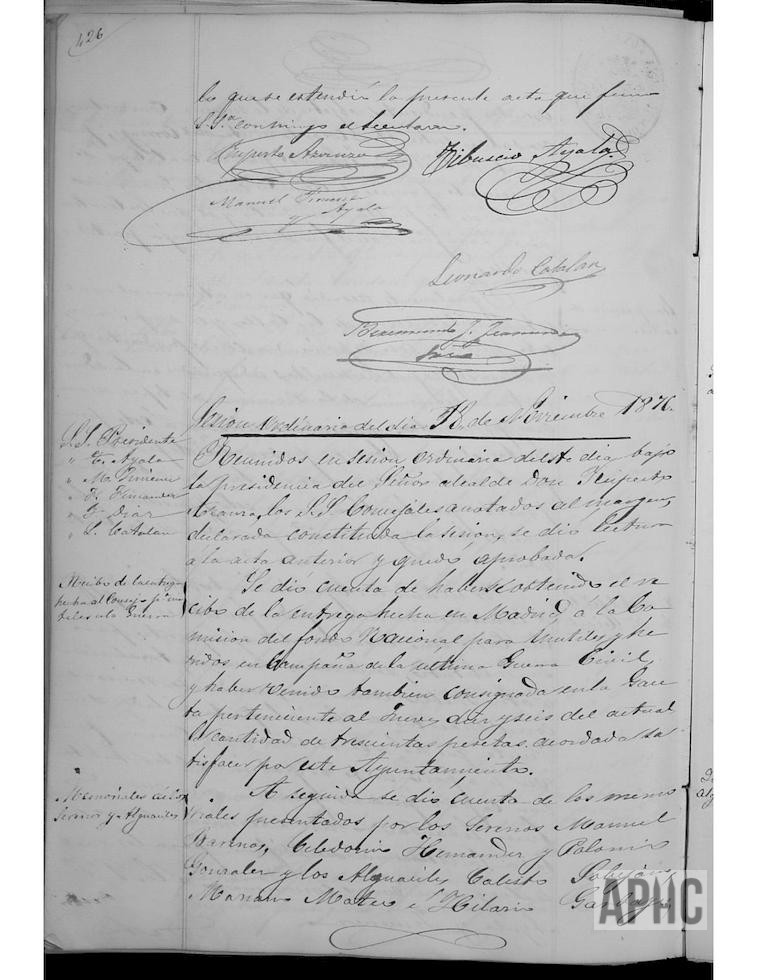 426
lo que se estendió la presente acta que firma
S.Sª conmigo el Secretario.
Ruperto Aranza
Tiburcio Ayala
Manuel Jimenez
y Ayala
Leonardo Catalan
Sesion Ordinaria del dia 18 de Noviembre 1876.
S.S. Presidente
" T. Ayala
" M. Jimenez
" F. Fernandez
" F. Diaz
" L. Catalan
Reunidos en sesion ordinaria de este dia bajo
la presidencia del Señor alcalde Don Ruperto
Aranza, los S.S. Concejales anotados al margen,
declarada constituida la sesion, se dió lectura
á la acta anterior y quedó aprobada.
Recibo de la entrega
hecha al Consejo pª inu
tiles en la Guerra
Se dió cuenta de haberse obtenido el re
cibo de la entrega hecha en Madrid, á la Co
mision del fondo Nacional para Inutiles y he
ridos en Campaña de la última Guerra Civil,
y haber venido tambien consignada en la Gace
ta perteneciente al Jueves diez y seis del actual
la cantidad de trescientas pesetas acordada sa
tisfacer por este Ayuntamiento.
Memoriales de los
Serenos y Alguaciles
A seguida se dió cuenta de los memo
riales presentados por los Serenos Manuel
Barenas, Celedonio Hernandez y Polonio
Gonzalez y los Alguaciles Calisto
Mariano Mateo é Hilario
APHC